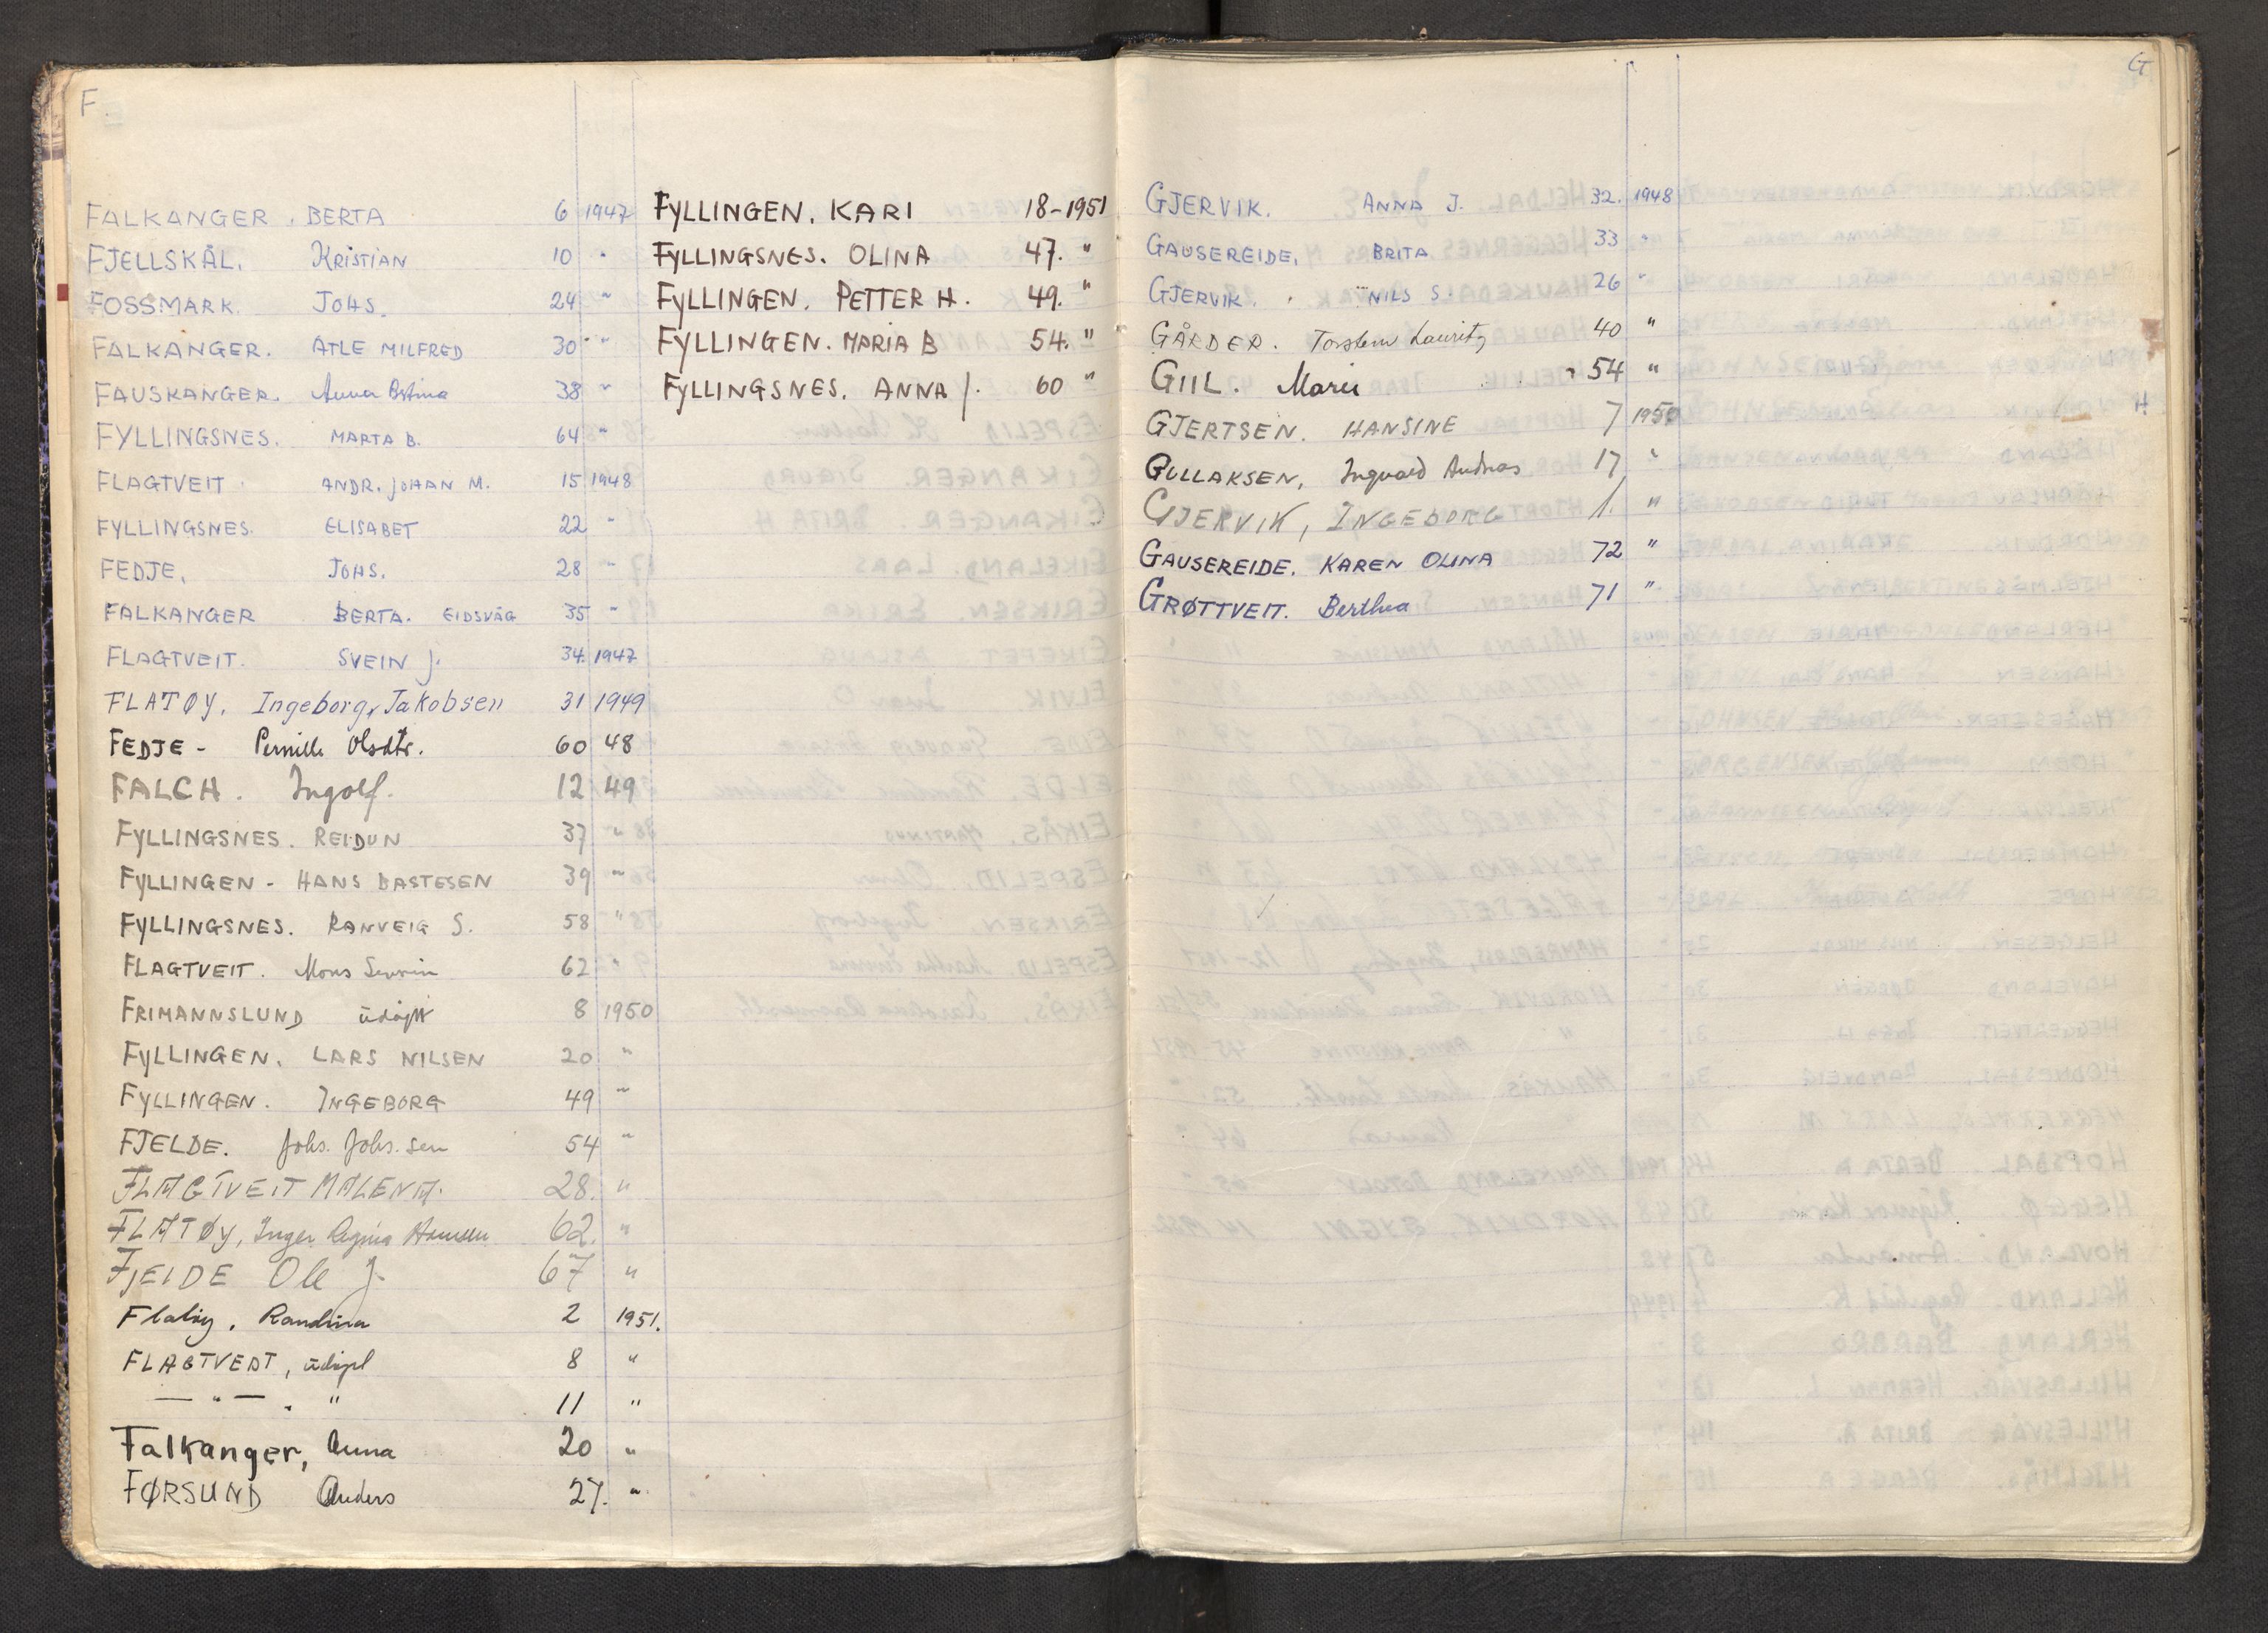 F
FALKANGER. BERTA 6 1947
FJELLSKÅL. KRISTIAN 10 "
FOSSMARK. JOHS. 24 "
FALKANGER. ATLE MILFRED 30 "
FAUSKANGER. Anna Bertina 38 "
FYLLINGSNES. MARTA B. 64 "
FLAGTVEIT. ANDR. JOHAN M. 15 1948
FYLLINGSNES. ELISABET 22 "
FEDJE. JOHS. 28 "
FALKANGER BERTA. EIDSVÅG 35 "
FLAGTVEIT. SVEIN J. 34. 1947
FLATØY. Ingeborg Jakobsen 31 1949
FEDJE - Pernille Olsdtr. 60 48
FALCH. Ingolf. 12 49
FYLLINGSNES. REIDUN 37 "
FYLLINGEN - HANS BASTESEN 39 "
FYLLINGSNES. RANVEIG S. 58 "
FLAGTVEIT. Mons Severin 62 "
FRIMANNSLUND udøpt 8 1950
FYLLINGEN. LARS NILSEN 20 "
FYLLINGEN. INGEBORG 49 "
FJELDE. Johs. Johs. sen 54 "
FLAGTVEIT MALENA. 28. "
FLATØY, Inger Regina Hansen 62. "
FJELDE Ole J. 67 "
Flatøy, Randina 2 1951.
FLAGTVEDT, udøpt 8 "
— " — . " 11 "
Falkanger, Anna 20 "
FØRSUND Anders 27. "
FYLLINGEN. KARI 18-1951
FYLLINGSNES. OLINA 47. "
FYLLINGEN. PETTER H. 49. "
FYLLINGEN. MARIA B 54. "
FYLLINGSNES. ANNA J. 60 "
G
GJERVIK. ANNA J. 32. 1948
GAUSEREIDE, BRITA 33 "
GJERVIK. NILS S. 26 "
GÅRDER. Torstein Lauritz 40 "
GIIL. Marie 54 "
GJERTSEN. HANSINE 7 1950
GULLAKSEN, Ingvald Andreas 17 "
GJERVIK, INGEBORG 1. "
GAUSEREIDE. KAREN OLINA 72 "
GRØTTVEIT. Berthea 71 "
H